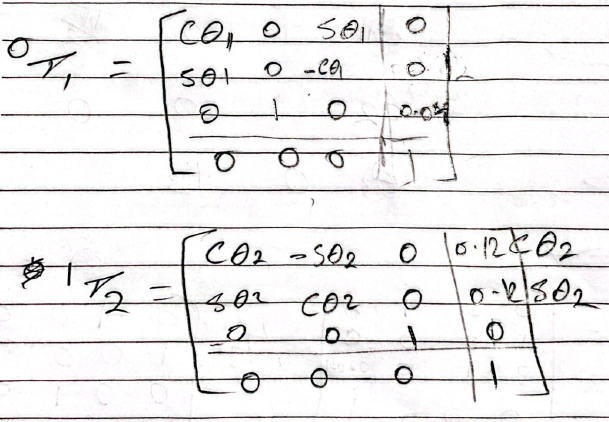 ⁰T₁ =
Cθ₁ 0 Sθ1 0
Sθ1 0 -Cθ1 0
0 1 0
0 0 0 1
¹T₂ =
Cθ2 -Sθ2 0 0.12 Cθ2
Sθ2 Cθ2 0 0.12 Sθ2
0 0 1 0
0 0 0 1